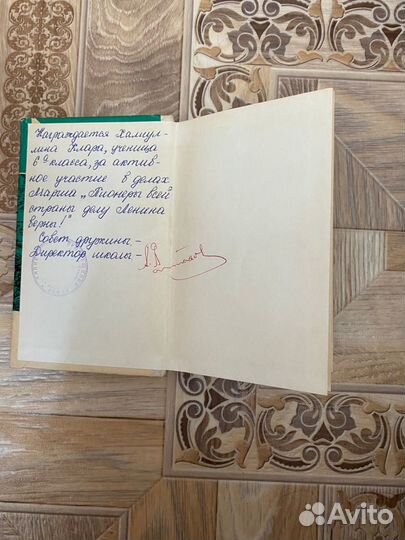 Награждается Халиул-
лина Клара, ученица
6 г класса, за актив-
ное участие в делах
Марша „Пионеры всей
страны делу Ленина
верны!"
Совет дружины –
Директор школы –
Avito